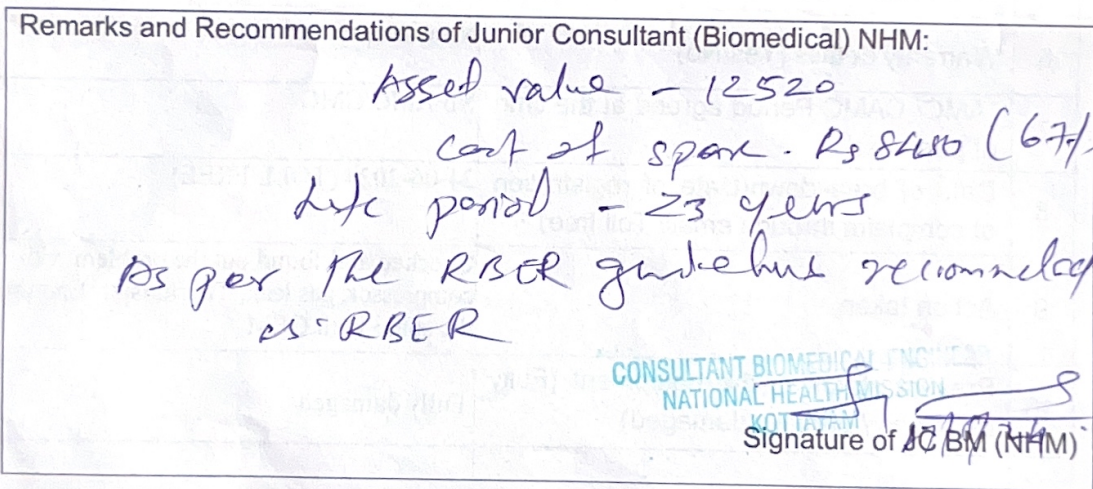 Remarks and Recommendations of Junior Consultant (Biomedical) NHM:
Asset value - 12520
Cost of spare. Rs 8450 (67%
Life period - 23 years
As per the RBER guidelines recommeded
as RBER
CONSULTANT BIOMEDICAL ENGINEER
NATIONAL HEALTH MISSION
KOTTAYAM
Signature of JC BM (NHM)